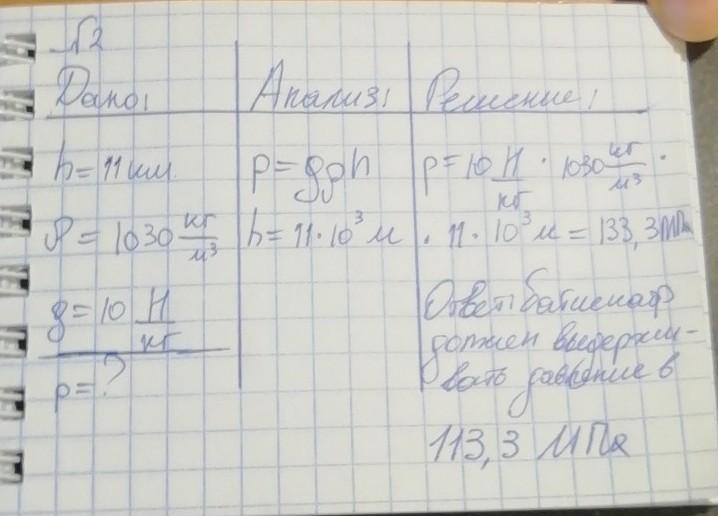 №2
Дано: Анализ: Решение:
h = 11 км p = gρh p = 10 Н/кг · 1030 кг/м³ ·
ρ = 1030 кг/м³ h = 11 · 10³ м · 11 · 10³ м = 133,3 МПа
g = 10 Н/кг
p = ?
Ответ: батискаф
должен выдержи-
вать давление в
113,3 МПа